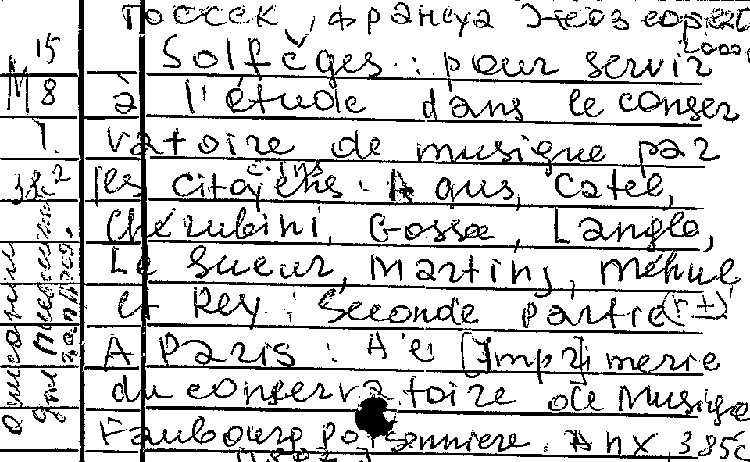 Госсек, Франсуа
15 Solfèges : pour servir
M 8 à l'étude dans le conser
1. vatoire de musique par
les citoyens : Agus, Catel,
Chérubini, Gosse, Langle,
Le Sueur, Martini, Méhul
et Rey : Seconde partie
A Paris : A e [Imp2] merie
du conservatoire de Musique
Faubourg poissonniere. An X, 385